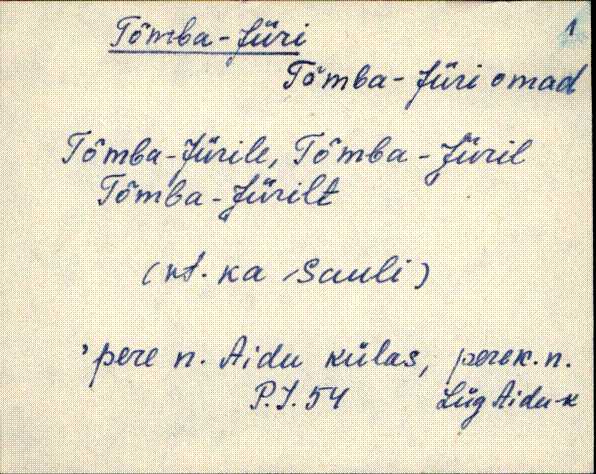 Tõmba-Jüri
1
Tõmba-Jüri omad
Tõmba-Jürile, Tõmba-Jüril
Tõmba-Jürilt
(vt. ka Sauli)
'pere n. Aidu külas, perek. n.
P.J. 54 Lüg Aidu-k